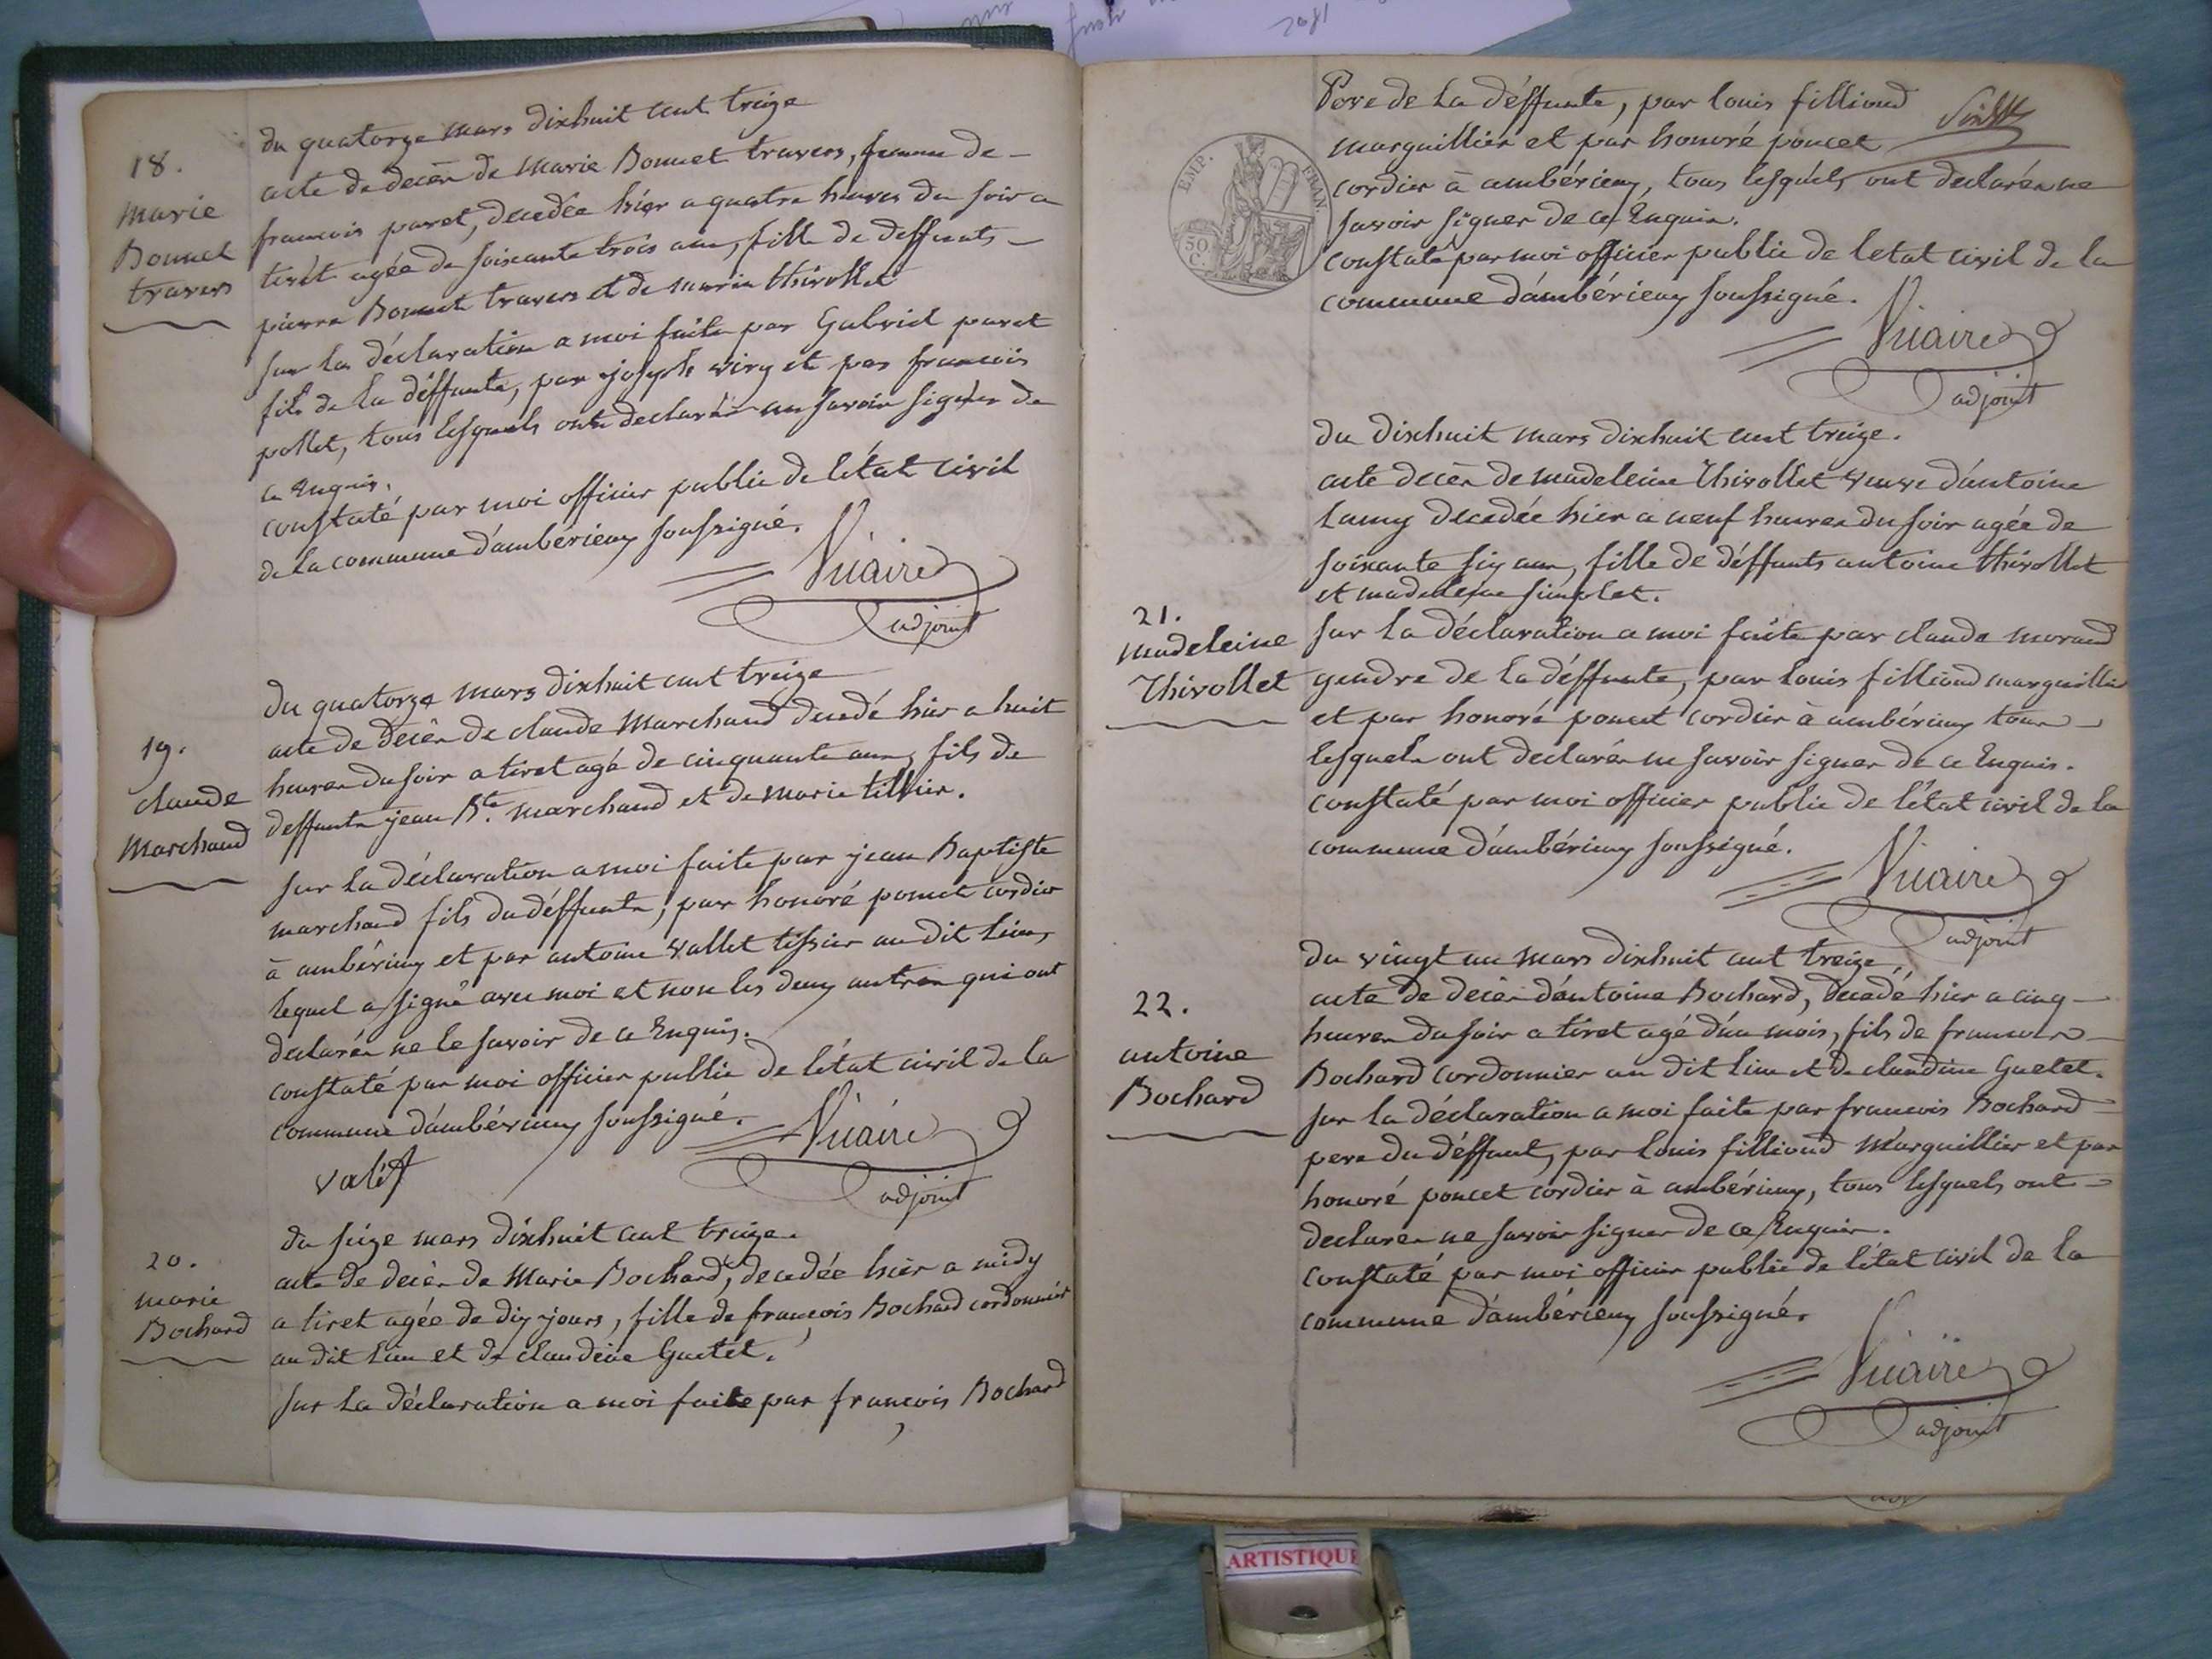 18.
marie
Bonnet
travers
du quatorze mars dixhuit cent treize
acte de decèn de marie Bonnet travers, femme de -
francois paret, decedée hier a quatre heures du soir a
tirêt agée de soixante trois ans, fille de deffunts -
pierre Bonnet travers et de marie thirollet
sur la déclaration a moi faite par Gabriel paret
fils de la déffunte, par joseph viry et par francois
pollet, tous lesquels ont declarés ne savoir signer de
ce Enquis.
constaté par moi officier public de l'état civil
de la commune d'ambérieux soussigné.
Vicaire
adjoint
19.
claude
Marchand
du quatorze mars dixhuit cent treize
acte de decèn de claude Marchand decedé hier a huit
heures du soir a tiret agé de cinquante ans, fils de
deffunts jean Bte. marchand et de marie tillier.
sur la déclaration a moi faite par jean Baptiste
marchand fils du déffunt, par honoré poncet cordier
à ambérieux et par antoine vallet tissier au dit lieu,
lequel a signé avec moi et non les deux autres qui ont
declarés ne le savoir de ce Enquis.
constaté par moi officier public de l'état civil de la
commune d'ambérieux soussigné.
Vicaire
valét
adjoint
20.
marie
Bochard
du seize mars dixhuit cent treize.
acte de decèn de Marie Bochard, decedée hier a midy
a tiret agée de dix jours, fille de françois Bochard cordonnier
au dit lieu et de claudine Guetet.
sur la déclaration a moi faite par francois Bochard
EMP. FRAN.
50
C.
Pere de la déffunte, par louis filliond
marguillier et par honoré poncet
cordier à ambérieux, tous lesquels ont declarés ne
savoir signer de ce Enquis.
constaté par moi officier public de letat civil de la
commune d'ambérieux soussigné.
Vicaire
adjoint
21.
madeleine
Thirollet
du dixhuit mars dixhuit cent treize.
acte decèn de madeleine Thirollet veuve d'antoine
Lamy decedée hier a neuf heures du soir agée de
soixante six ans, fille de déffunts antoine thirollet
et madeleine simplet.
sur la déclaration a moi faite par claude morand
gendre de la déffunte, par louis filliond marguillier
et par honoré poncet cordier à ambérieux tous
lesquels ont declarés ne savoir signer de ce Enquis.
constaté par moi officier public de l'état civil de la
commune d'ambérieux soussigné.
Vicaire
adjoint
22.
antoine
Bochard
du vingt un mars dixhuit cent treize.
acte de decèn d'antoine Bochard, decedé hier a cinq -
heures du soir a tiret agé d'un mois, fils de francois -
Bochard cordonnier au dit lieu et de claudine Guetet.
sur la déclaration a moi faite par francois Bochard -
pere du déffunt, par louis filliond marguillier et par
honoré poncet cordier à ambérieux, tous lesquels ont -
declarés ne savoir signer de ce Enquis.
constaté par moi officier public de l'état civil de la
commune d'ambérieux soussigné.
Vicaire
adjoint
ARTISTIQUE